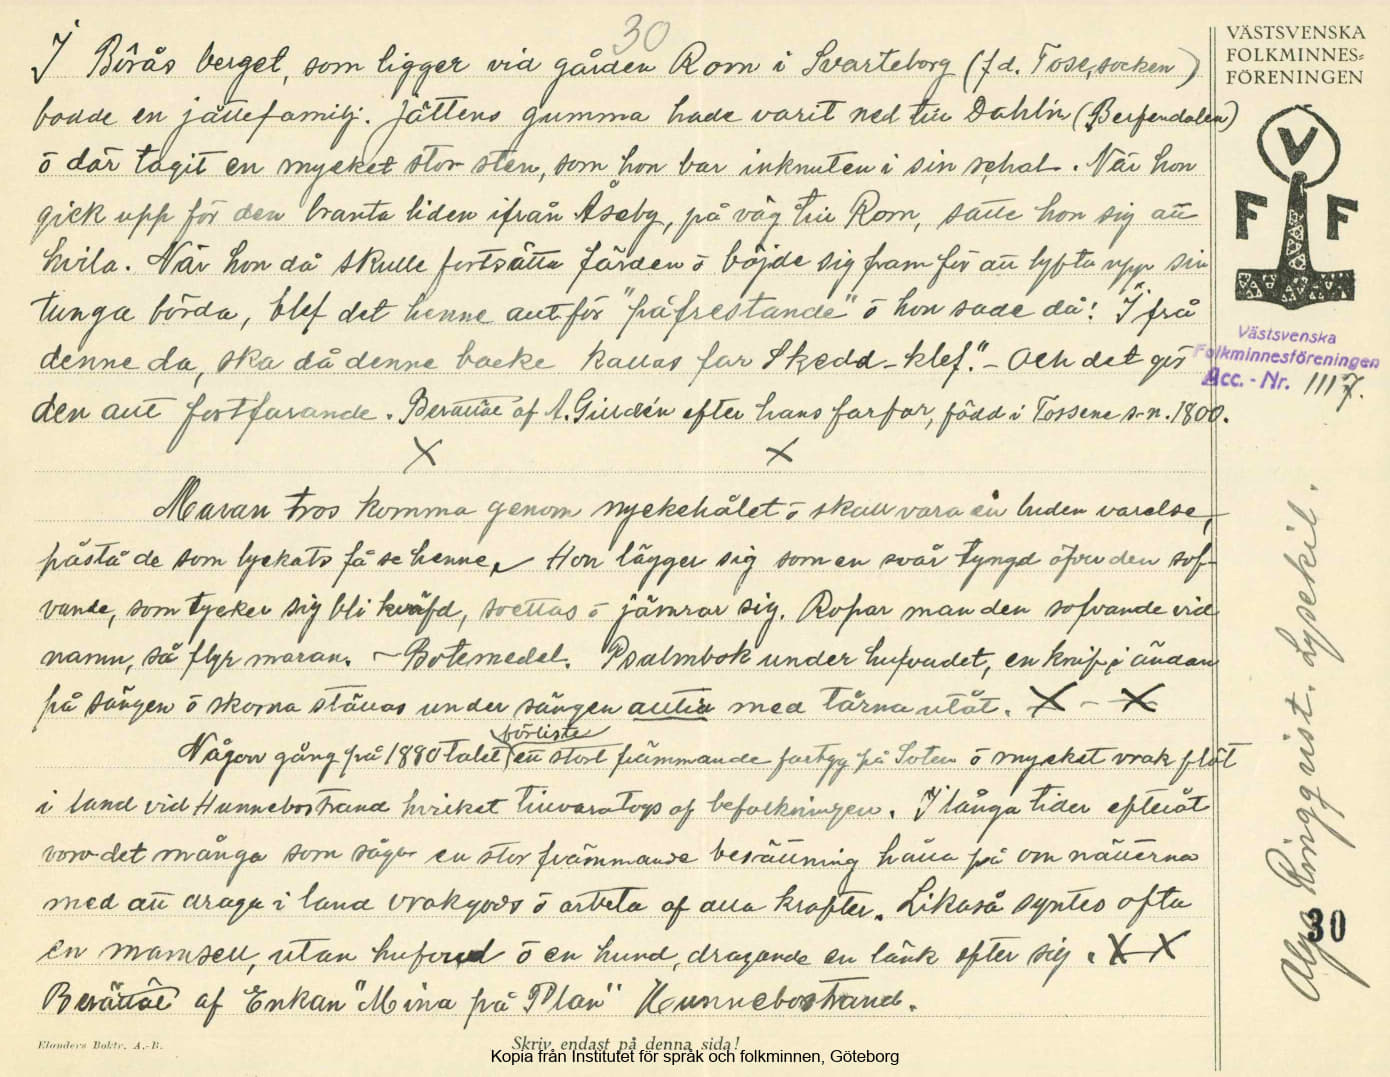 30
VÄSTSVENSKA
FOLKMINNES=
FÖRENINGEN
V
F F
Västsvenska
Folkminnesföreningen
Acc. - Nr. 1117.
I Börås berget, som ligger vid gården Rom i Svarteborg (f d. Tose, socken)
bodde en jättefamilj. Jättens gumma hade varit ned till Dahlin (Berfendalen)
ō där tagit en mycket stor sten, som hon bar inknuten i sin schal. När hon
gick upp för den branta liden ifrån Åseby, på väg till Rom, satte hon sig att
hvila. När hon då skulle fortsätta färden ō böjde sig fram för att lyfta upp sin
tunga börda, blef det henne allt för "påfrestande" ō hon sade då: "I frå
denne da, ska då denne backe kallas far Skedd-klef." - Och det gör
den allt fortfarande. Berättat af A. Gilldén efter hans farfar, född i Tossene s-n. 1800.
X X
Maran tros komma genom nyckehålet ō skall vara en luden varelse,
påstå de som lyckats få se henne. Hon lägger sig som en svår tyngd öfver den sof-
vande, som tycker sig bli kväfd, svettas ō jämrar sig. Ropar man den sofvande vid
namn, så flyr maran. - Botemedel. Psalmbok under hufvudet, en knif i ändan
på sängen ō skorna ställas under sängen alltid med tårna utåt. X - X
Någon gång på 1880 talet förliste ett stort främmande fartyg på Soten ō mycket vrak flöt
i land vid Hunnebostrand hvilket tillvaratogs af befolkningen. I långa tider efteråt
voro det många som sågo en stor främmande besättning hålla på om nätterna
med att draga i land vrakgods ō arbeta af alla krafter. Likaså syntes ofta
en mamsell, utan hufvud ō en hund, dragande en länk efter sig. X X
Berättat af Enkan "Mina på Plan" Hunnebostrand.
Alga Ringqvist. Lysekil.
30
Elanders Boktr. A.-B.
Skriv endast på denna sida!
Kopia från Institutet för språk och folkminnen, Göteborg